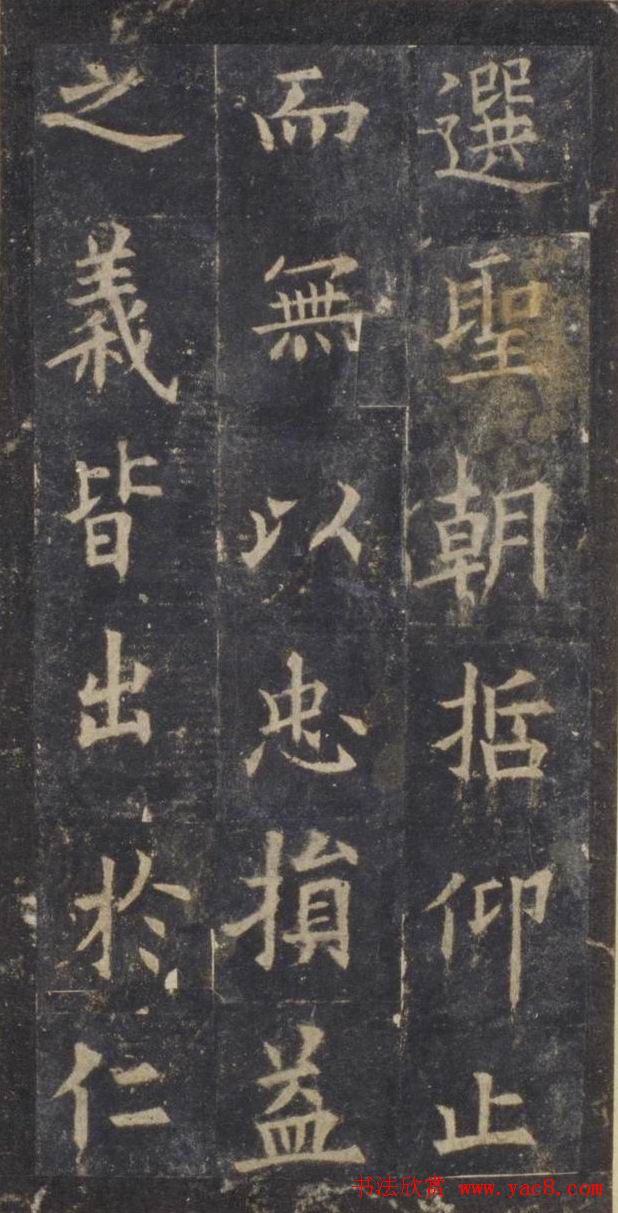 選聖朝哲仰止
而無以忠損益
之義皆出於仁
书法欣赏 www.yac8.com